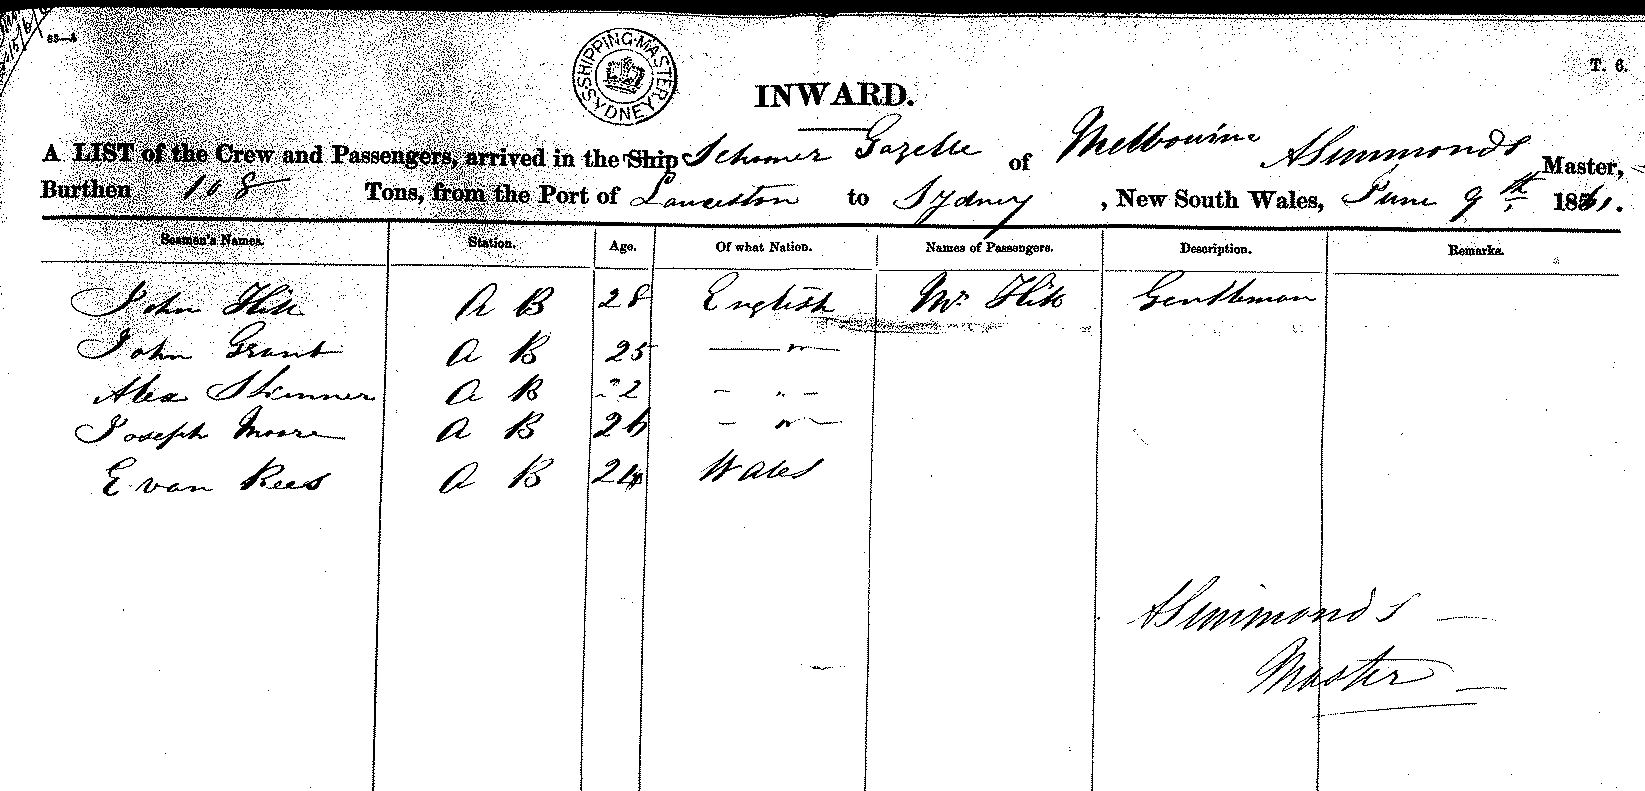 63—A
SHIPPING MASTER SYDNEY
T. 6.
INWARD.
A LIST of the Crew and Passengers, arrived in the Ship Schooner Gazelle of Melbourne A Simmonds Master,
Burthen 108 Tons, from the Port of Launceston to Sydney, New South Wales, June 9th 1861.
Seamen's Names. Station. Age. Of what Nation. Names of Passengers. Description. Remarks.
John Hill A B 28 English Mr. Hill Gentleman
John Grant A B 25 — " —
Alex Skinner A B 22 - " -
Joseph Moore A B 26 - " -
Evan Rees A B 24 Wales
A Simmonds —
Master —